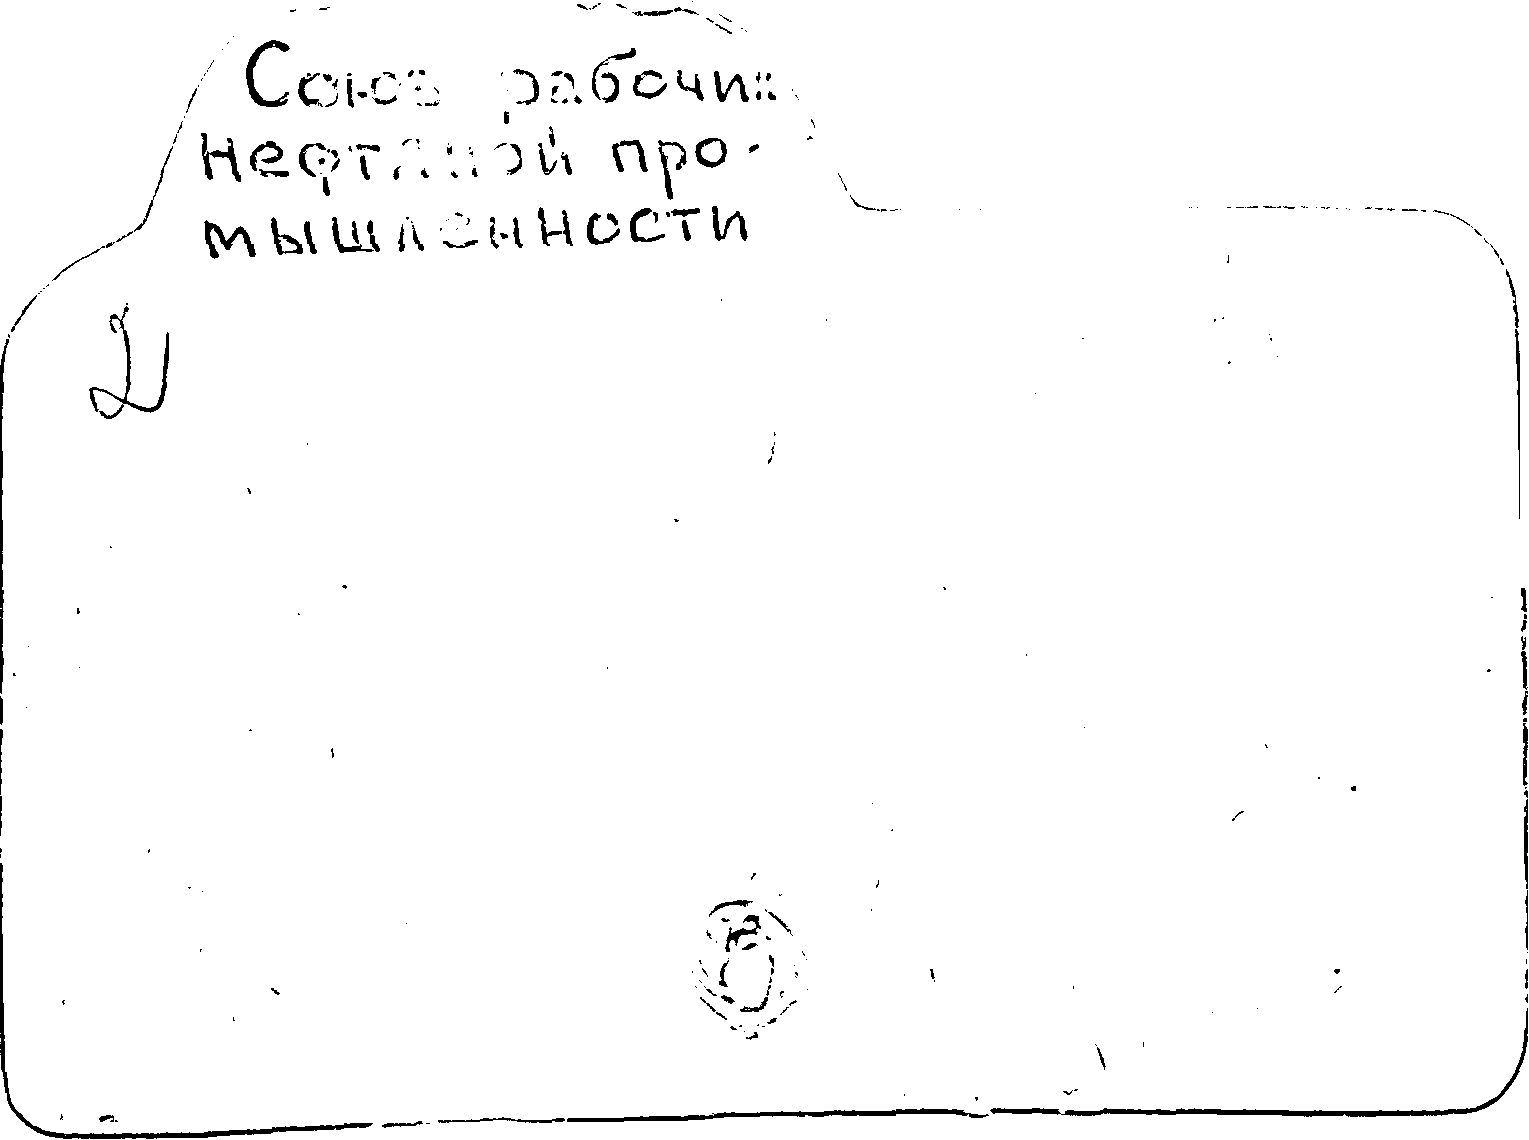 Союз рабочих
нефтяной про-
мышленности
2